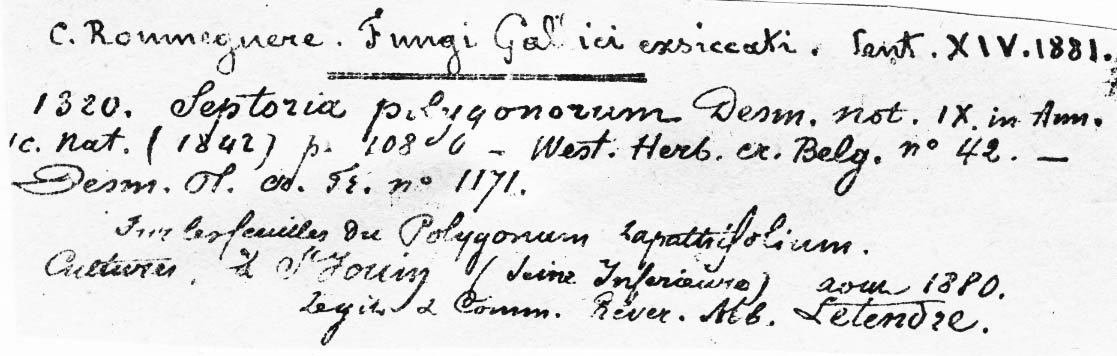 C. Roumeguere. Fungi Gallici exsiccati. Cent. XIV. 1881.
1320. Septoria polygonorum Desm. not. IX. in Ann.
Sc. Nat. (1842) p. 108 - West. Herb. cr. Belg. n° 42. —
Desm. Pl. cr. Fr. n° 1171.
Sur les feuilles du Polygonum lapathifolium.
Cultures, à St Jouin (Seine Inférieure) aout 1880.
Legit & Comm. Réver. Abb. Letendre.